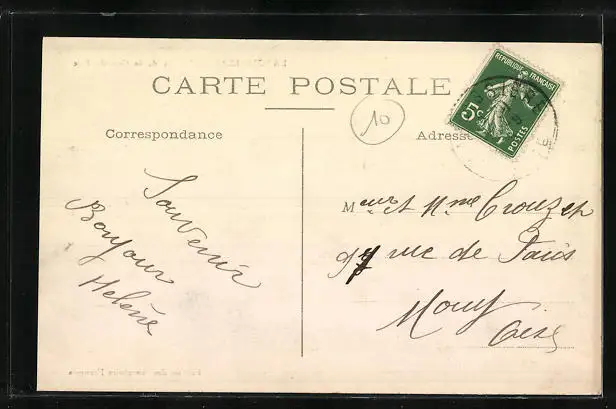 CARTE POSTALE
10
RÉPUBLIQUE FRANÇAISE
5c
POSTES
Correspondance
Adresse
Souvenir
Bonjour
Helène
Meur et Mme Crouzet
97 rue de Paris
Mouy
Oise